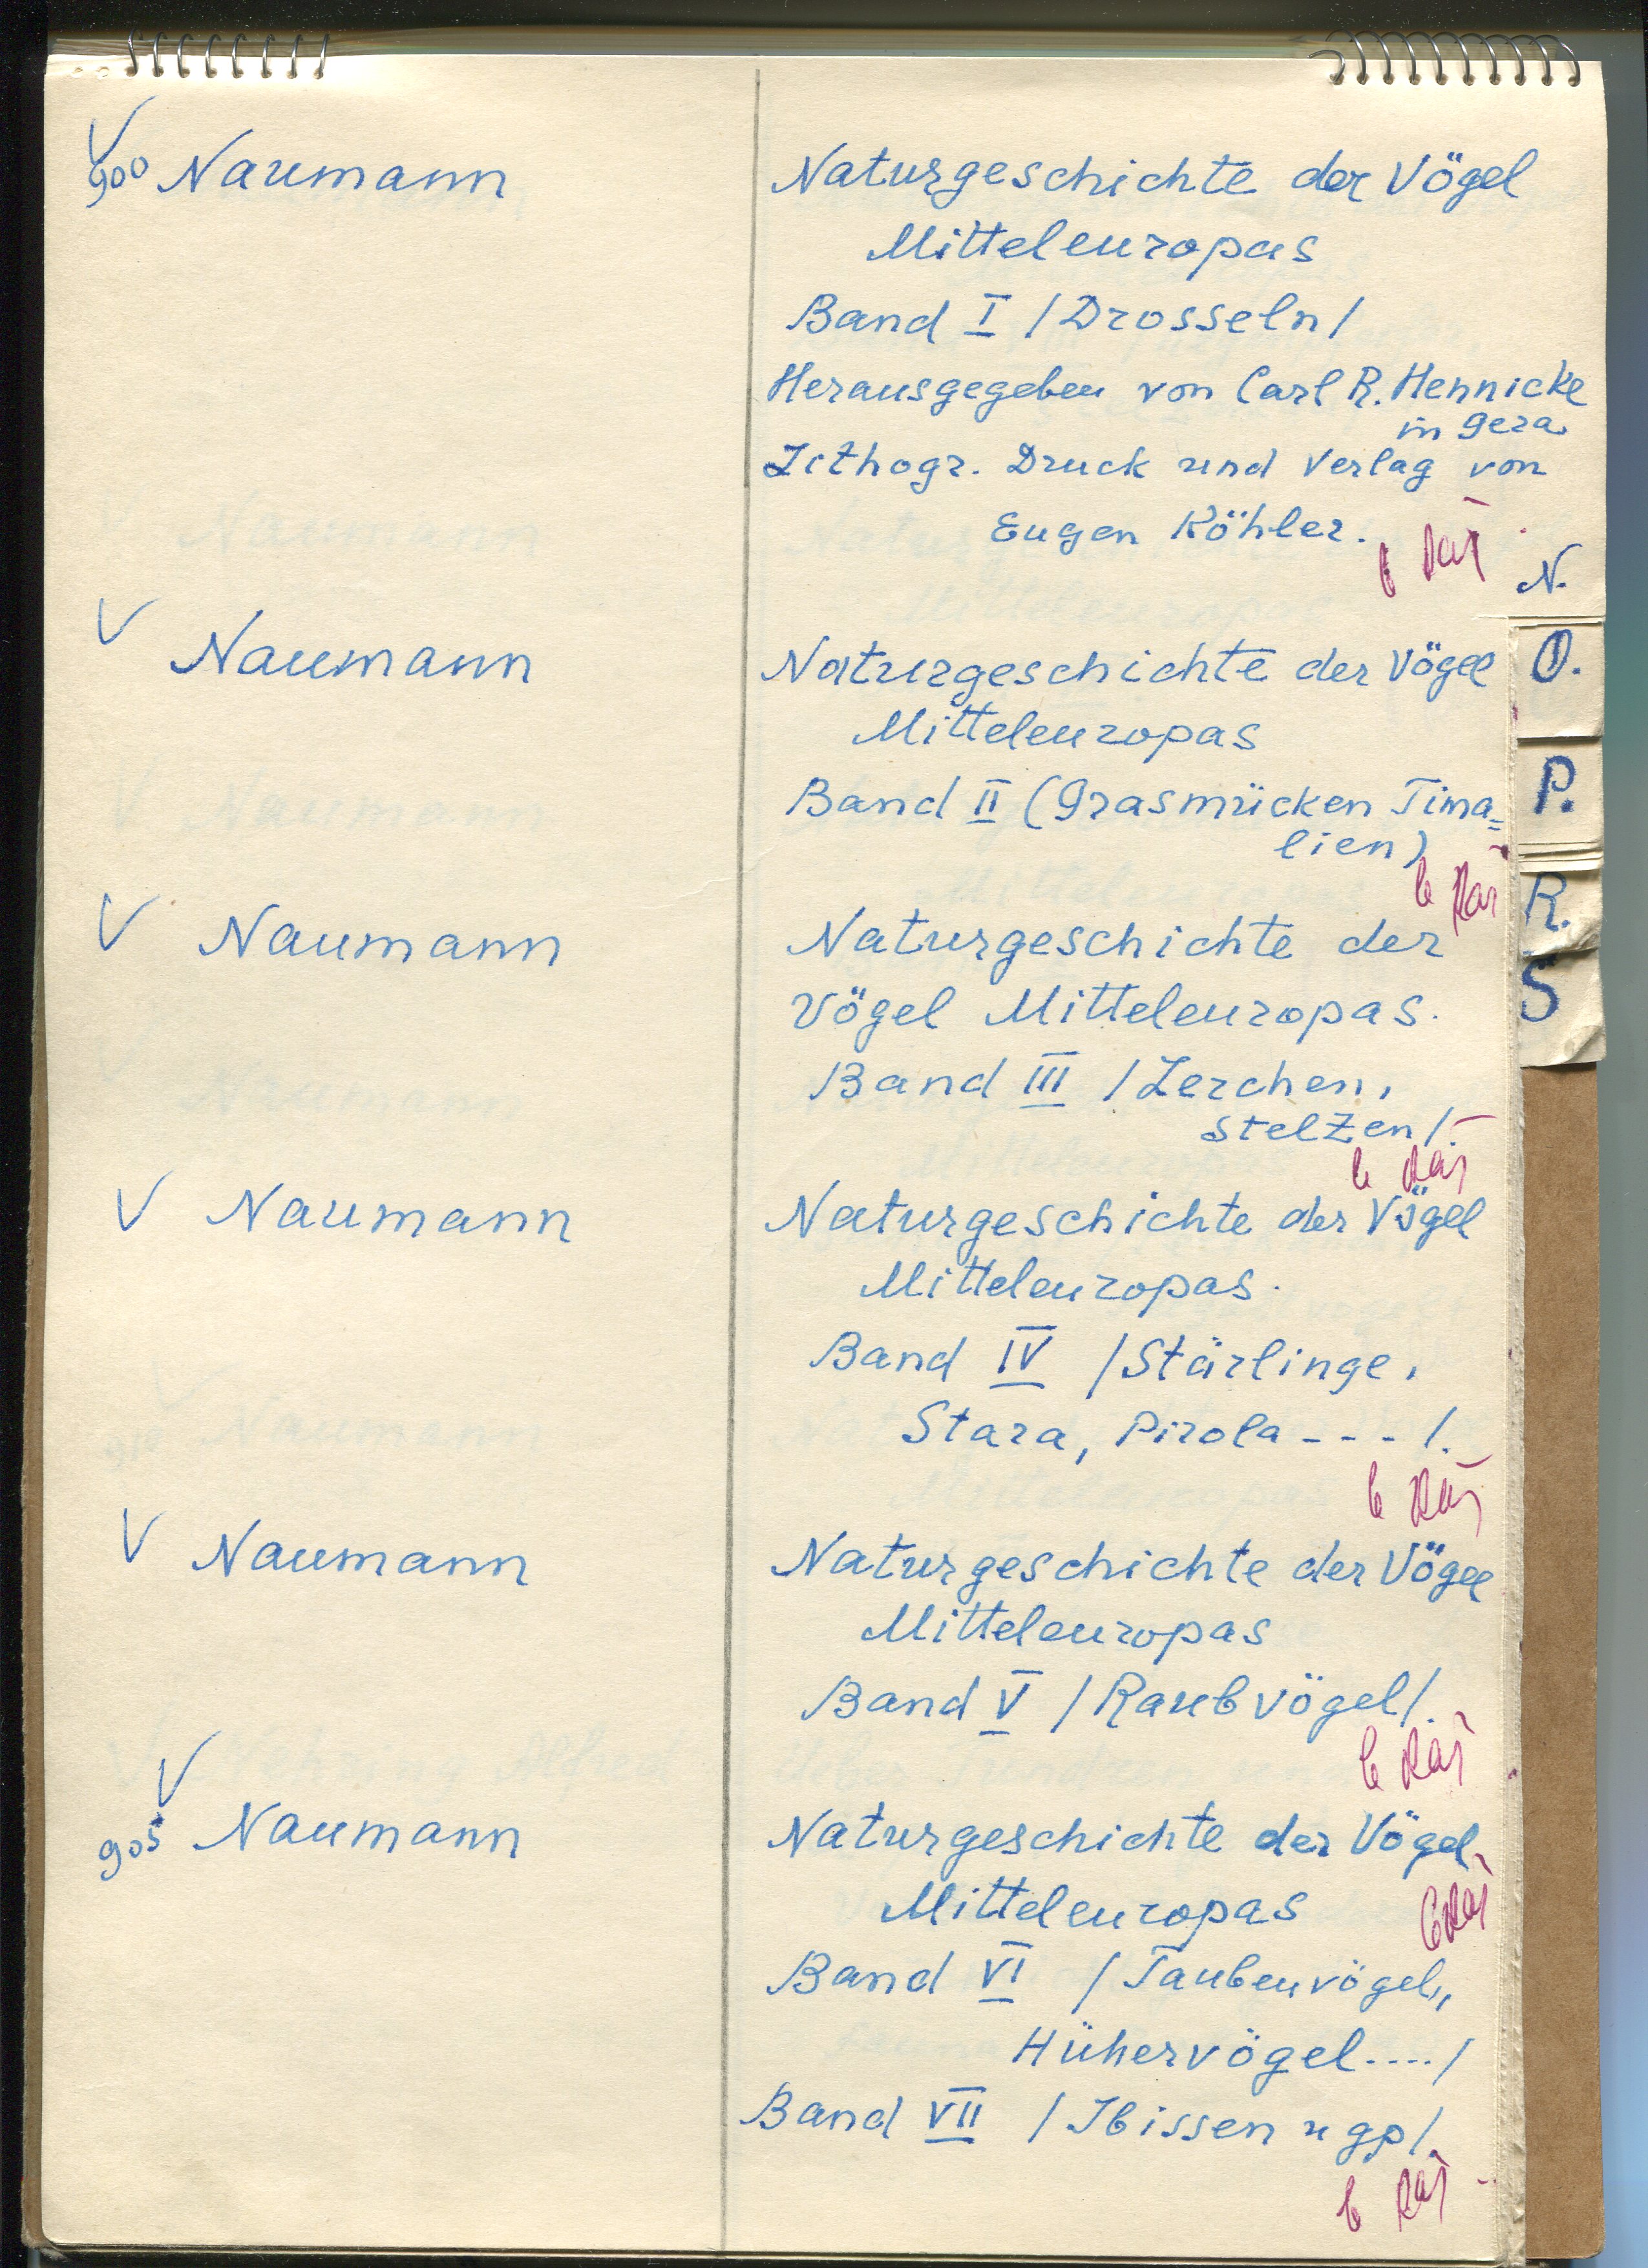 V
900 Naumann
Naturgeschichte der Vögel
Mitteleuropas
Band I /Drosseln/
Herausgegeben von Carl R. Hennicke
in Gera
Lithogr. Druck und Verlag von
Eugen Köhler.
N.
V Naumann
Naturgeschichte der Vögel
Mitteleuropas
Band II (Grasmücken Tima=
lien)
O.
P.
R.
S
V Naumann
Naturgeschichte der
Vögel Mitteleuropas.
Band III /Lerchen,
Stelzen/.
V Naumann
Naturgeschichte der Vögel
Mitteleuropas.
Band IV /Stärlinge,
Stara, Pirola - - - /.
V Naumann
Naturgeschichte der Vögel
Mitteleuropas
Band V /Raubvögel/.
V
905 Naumann
Naturgeschichte der Vögel
Mitteleuropas
Band VI /Taubenvögel,,
Hühervögel..../
Band VII /Ibissen u gp/.